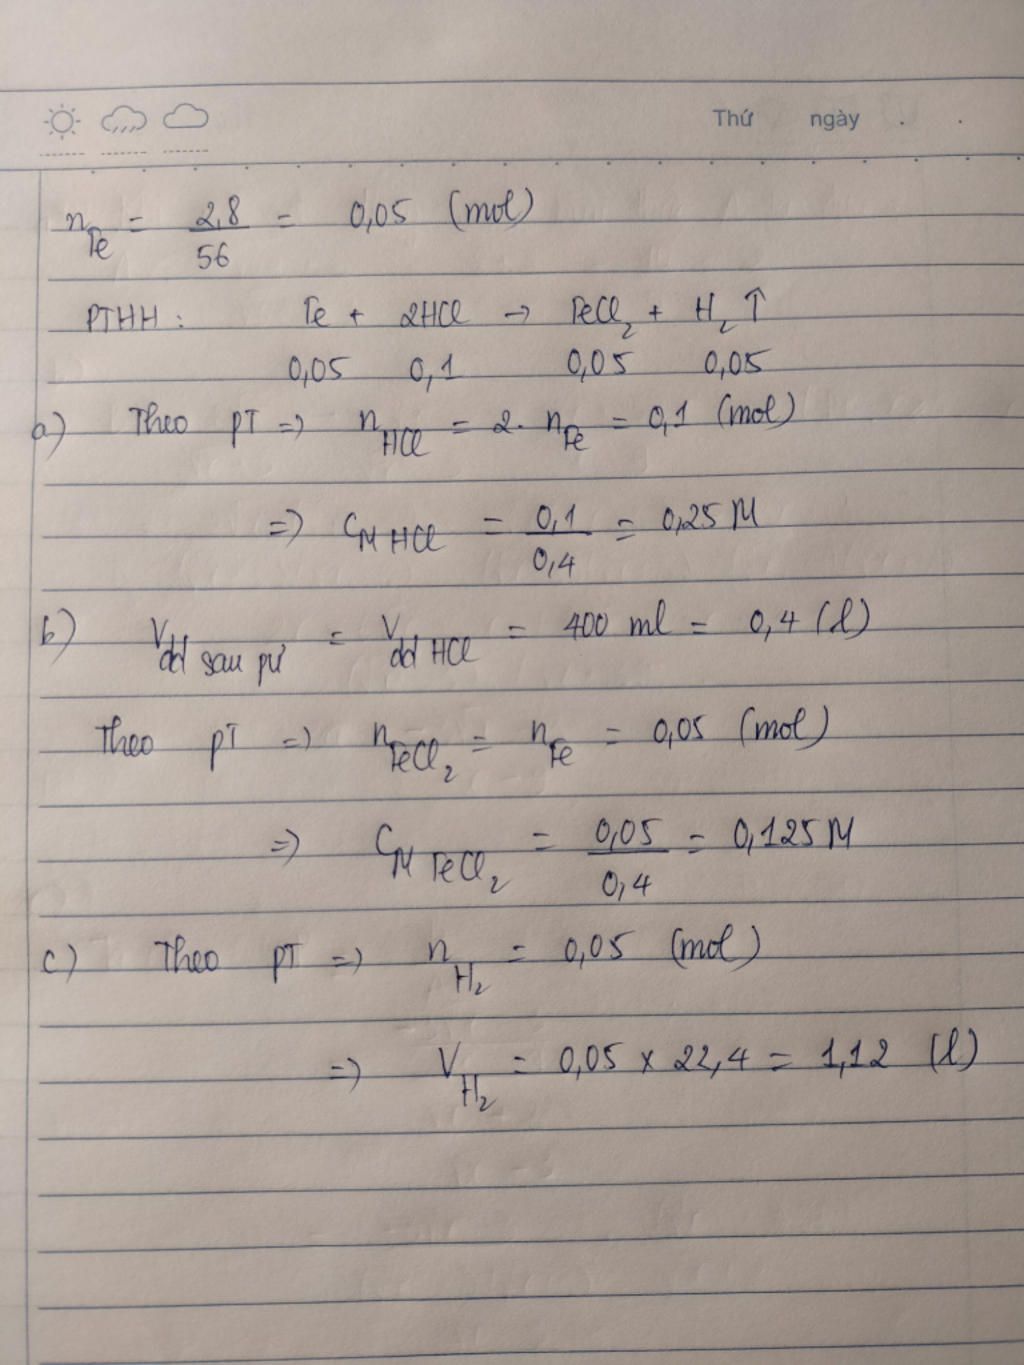 Thứ ngày
n Fe = 2,8 / 56 = 0,05 (mol)
PTHH : Fe + 2HCl → FeCl₂ + H₂ ↑
0,05 0,1 0,05 0,05
a) Theo PT => n HCl = 2. n Fe = 0,1 (mol)
=> C M HCl = 0,1 / 0,4 = 0,25 M
b) V dd sau pư = V dd HCl = 400 ml = 0,4 (l)
Theo PT => n FeCl₂ = n Fe = 0,05 (mol)
=> C M FeCl₂ = 0,05 / 0,4 = 0,125 M
c) Theo PT => n H₂ = 0,05 (mol)
=> V H₂ = 0,05 x 22,4 = 1,12 (l)